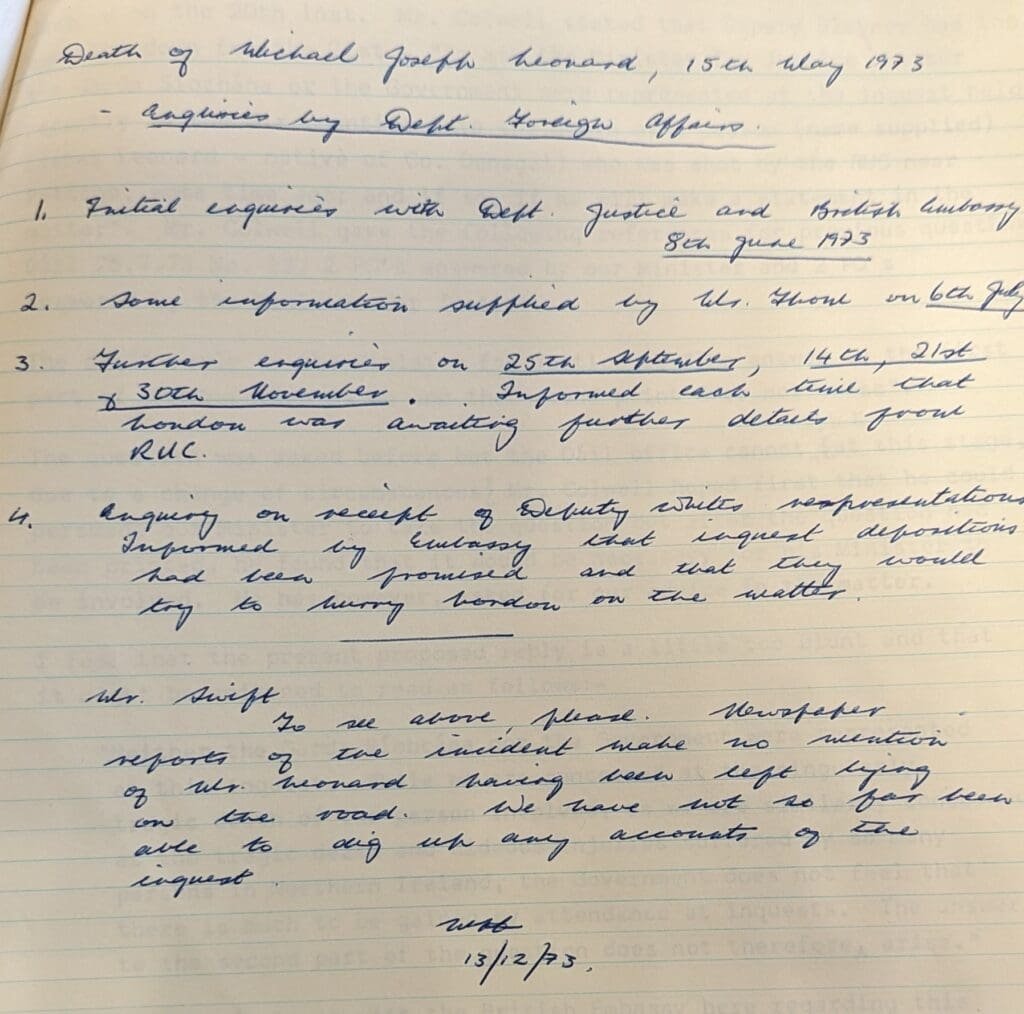 Death of Michael Joseph Leonard, 15th May 1973
- Enquiries by Dept. Foreign Affairs.
1. Initial enquiries with Dept. Justice and British Embassy
8th June 1973
2. Some information supplied by Mr. Thom on 6th July
3. Further enquiries on 25th September, 14th, 21st
& 30th November. Informed each time that
London was awaiting further details from
RUC.
4. Enquiry on receipt of Deputy Whites representations
Informed by Embassy that inquest depositions
had been promised and that they would
try to hurry London on the matter.
Mr. Swift
To see above, please. Newspaper
reports of the incident make no mention
of Mr. Leonard having been left lying
on the road. We have not so far been
able to dig up any accounts of the
inquest.
13/12/73.